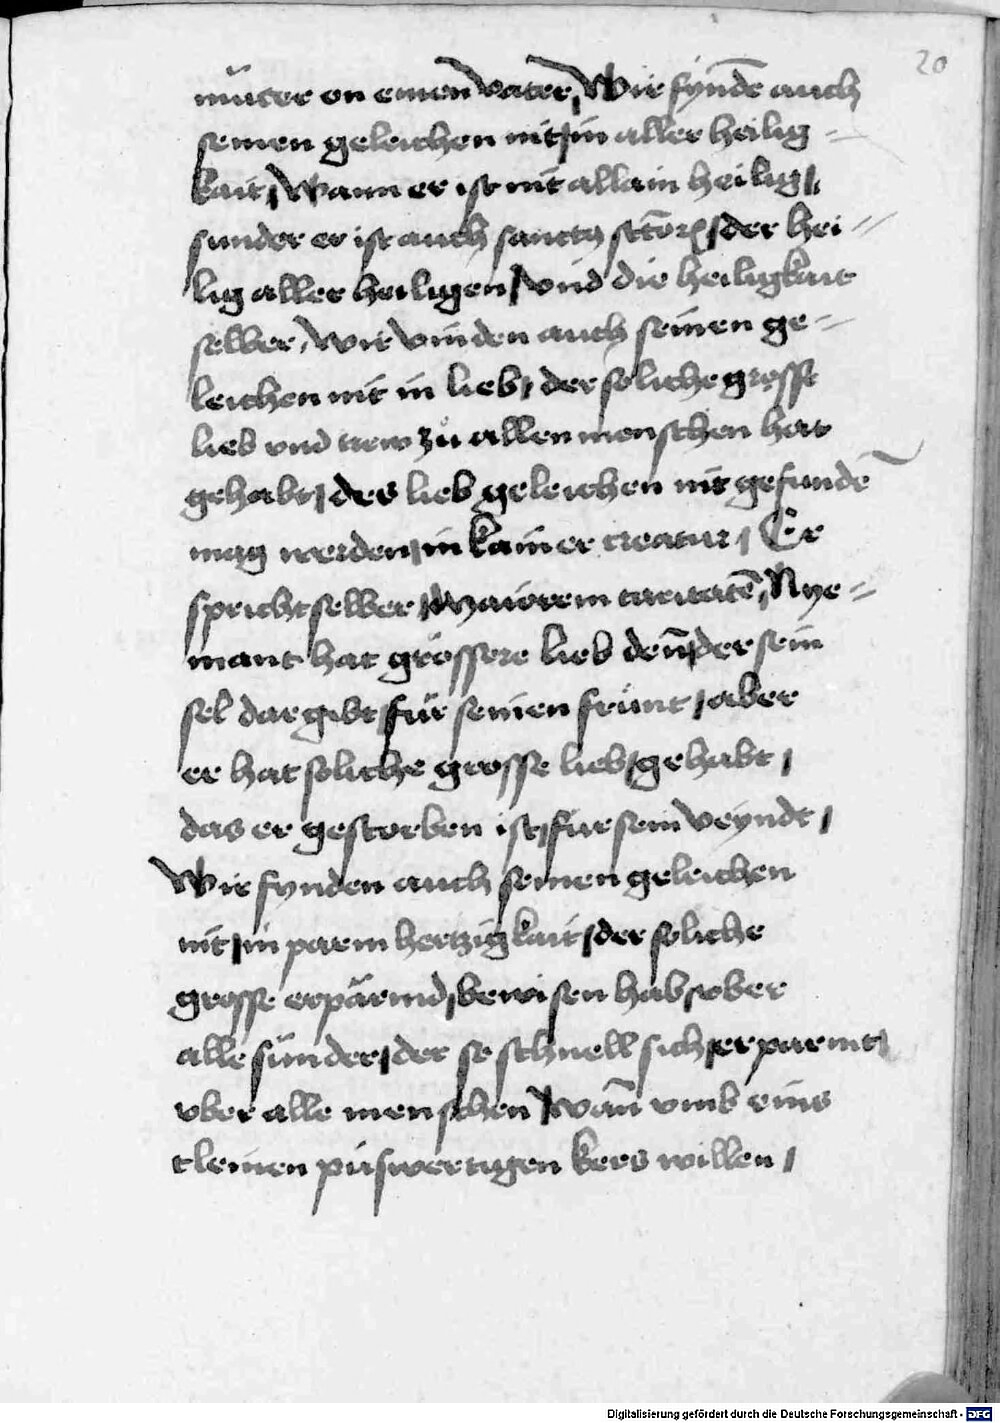 20
můter on einen vater, Wir fyndē auch
seinen geleichen nit / in aller heilig=
kait / Wann er ist nit allain heilig /
sunder er ist auch sanctus sctōrꝝ / der hei=
lig aller heiligen / vnd die heiligkait
selber, Wir vinden auch seinen ge=
leichen nit in lieb / der soliche grosse
lieb vnd trew zů allen menschen hat
gehabt / des lieb geleichen nit gefundē
mag werden / in kainer creatur / Er
spricht selber / Maiorem caritatē, Nye=
mant hat grössere lieb deñ / der sein
sel dar gibt / für seinen frünt / aber
er hat soliche grosse lieb / gehabt /
das er gestorben ist / für sein veyndt /
Wir fynden auch seinen geleichen
nit / in parmhertzigkait / der soliche
grosse erpärmd / bewisen hab / vber
alle sünder / der so schnell sich / erparmt /
vber alle menschen / Wañ vmb eins
cleinen püswertigen kers willen /
Digitalisierung gefördert durch die Deutsche Forschungsgemeinschaft - DFG